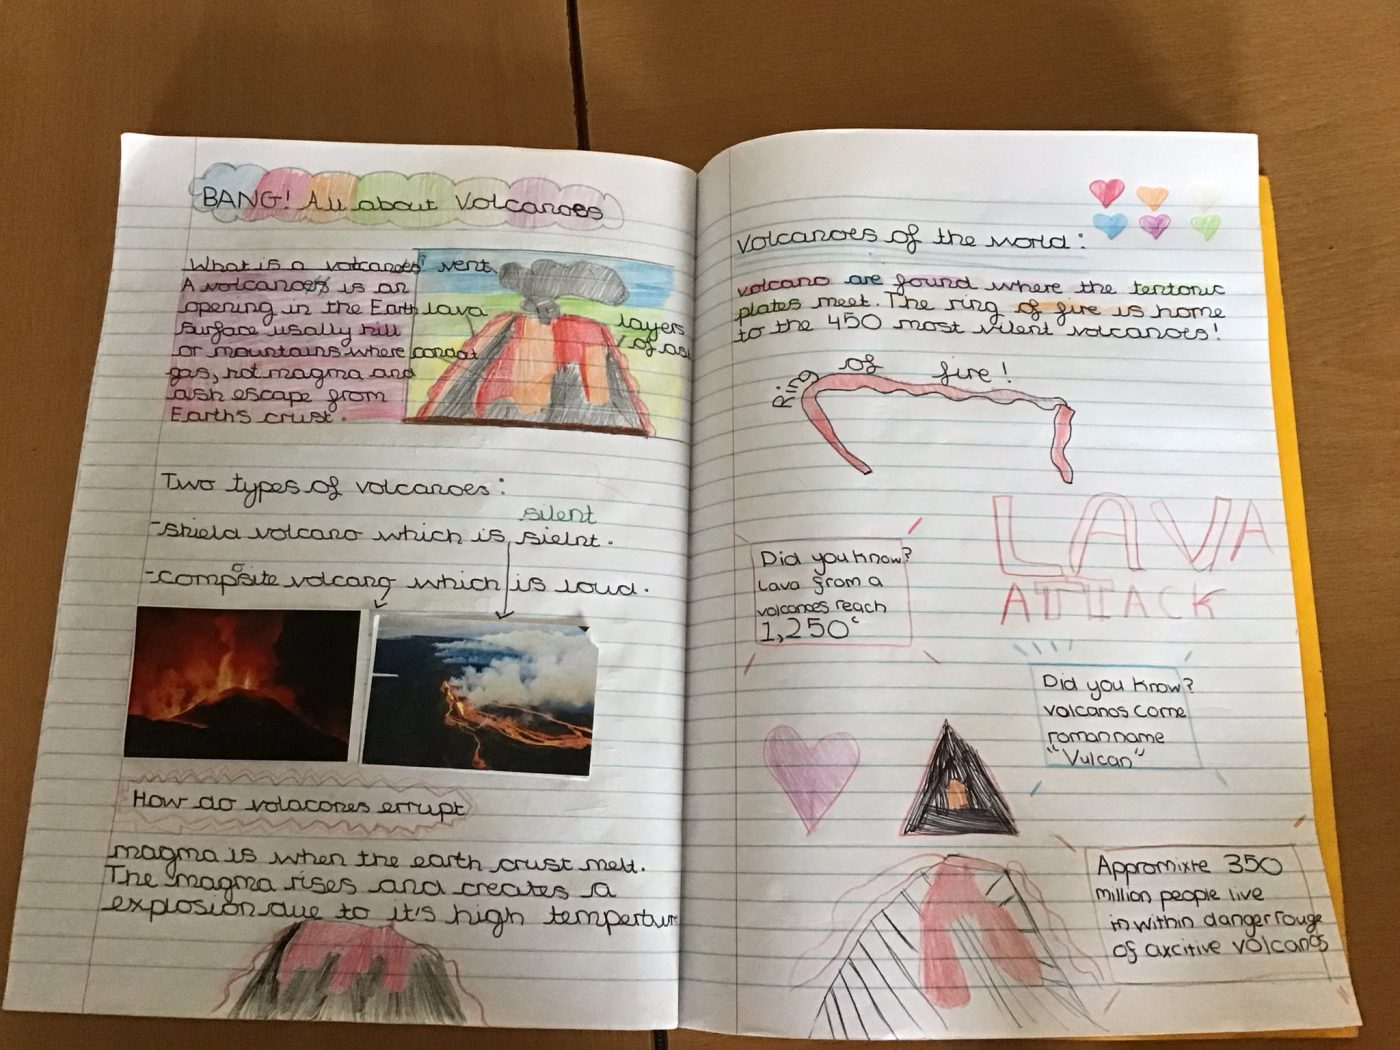 BANG! All about Volcanoes
What is a volcanoes'
A volcanoes is an
opening in the Earth
surface usally hill
or mountains where
gas, hot magma and
ash escape from
Earth's crust.
vent
lava
layers
of ash
Two types of volcanoes:
silent
-shield volcano which is sielnt.
-composite volcano which is loud.
How do volacones errupt
magma is when the earth crust melt.
The magma rises and creates a
explosion due to it's high temperture
Volcanoes of the world:
volcano are found where the tentonic
plates meet. The ring of fire is home
to the 450 most vilent volcanoes!
Ring of fire!
LAVA
ATTACK
Did you know?
Lava from a
volcanoes reach
1,250°
Did you know?
volcanos come
roman name
"Vulcan"
Appromixte 350
million people live
in within danger rouge
of axcitive volcanos